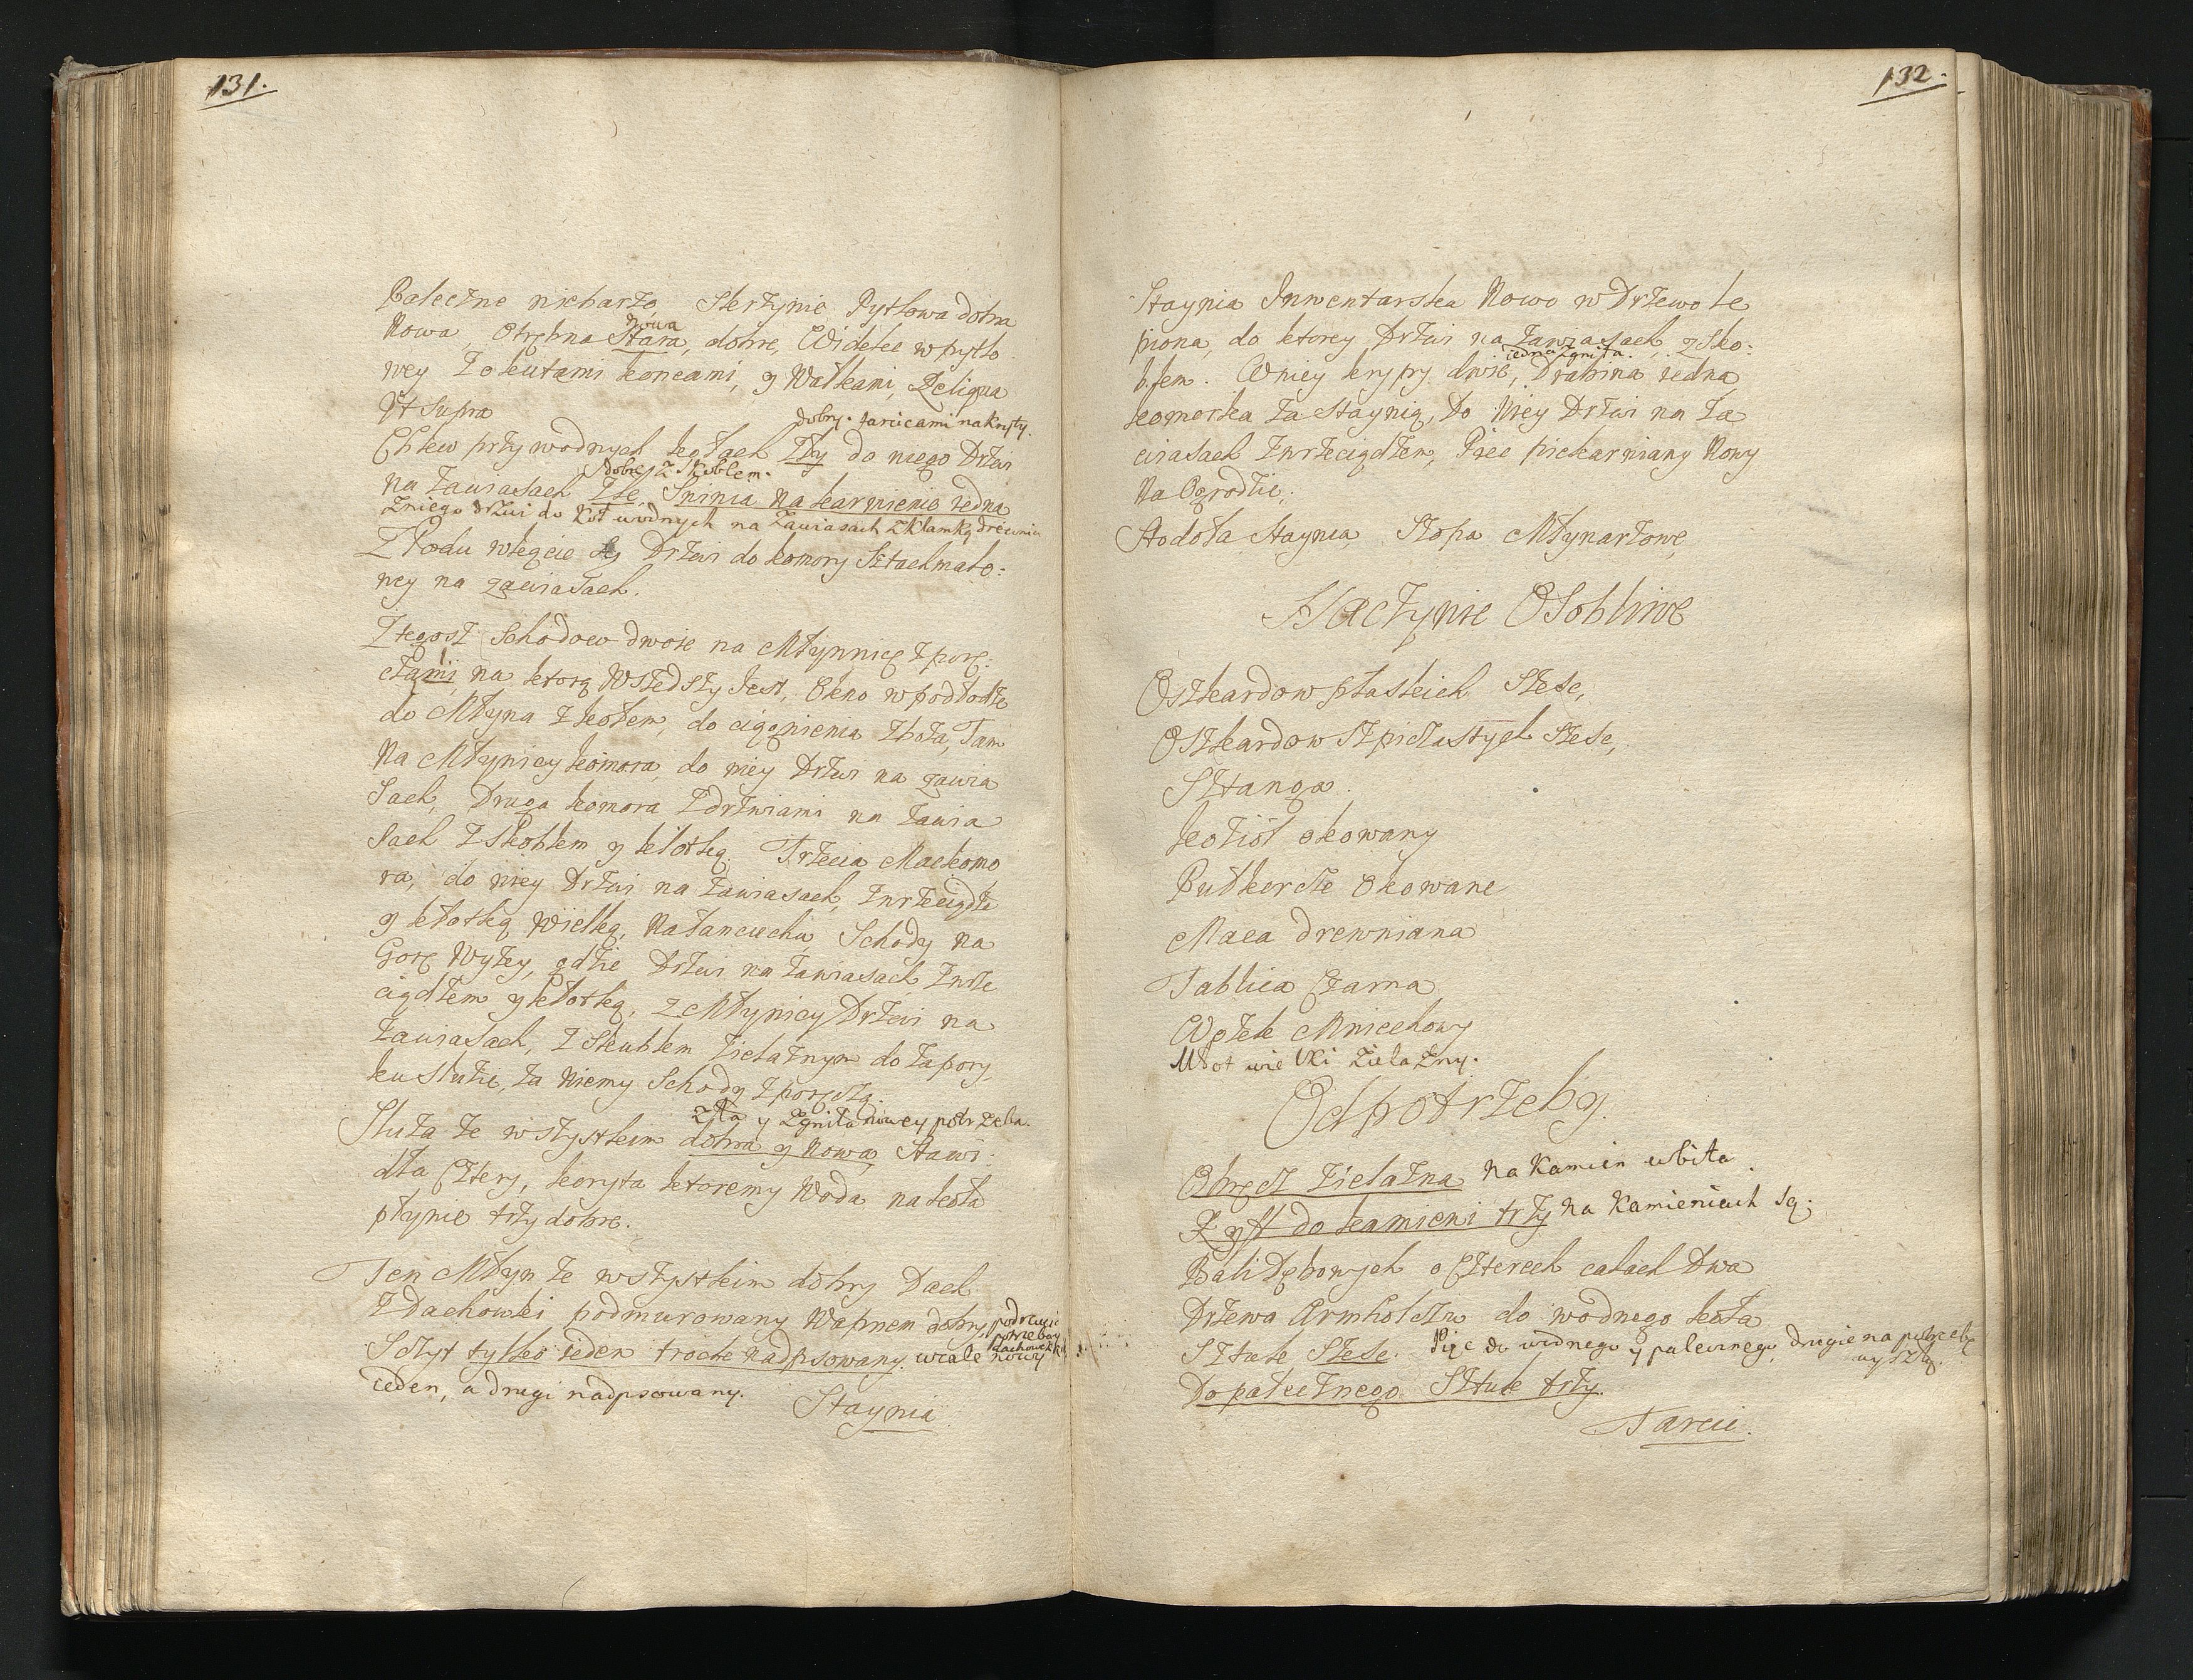 131.
Paleczne nicharzo, Skrzynie Pytlowa dobra
nowa
Nowa, Otrębna Stara, dobre, Widelce w pytlo
wey Zokutami koncami, y Wałkami, Reliqua
Vt Supra
dobry. tarcicami nakryty.
Chlew przy wodnych kołach Zły do niego Drzwi
dobre z Skoblem.
na Zawiasach Złe, Sninia na karmienie iedna
Zniego drzwi do Kół wodnych na Zawiasach z klamką drewnia
Z Przodu wleęcie Drzwi do komory Sztachmało:
wey na zawiasach.
Ztegosz Schodow dwoie na Młynnicę z porę:
czami, na ktorą Wszedszy Jest, Okno w podłodze
do Młyna z kołem, do ciągnienia Zboża, Tam
Na Młynicy komora, do niey Drzwi na zawia
Sach, Druga komora Zdrzwiami na zawia
Sach Z Skoblem y kłotką. Trzecia Mackomo
ra, do niey Drzwi na zawiasach, Zwrzeciądze
y kłotką Wielką, Na łancuchu, Schody na
Gorę Wyzey, gdzie Drzwi na Zawiasach Zwrze
ciądzem y kłotką, z Młynicy Drzwi na
Zawiasach, Z Skublem Zielaznym do Zapory,
ku Słuzie, za niemy Schody z poręczą.
zła y Zgniła nowey potrzeba.
Sluza ze wszystkim dobra y Nowa, Stawi:
dła Cztery, koryta ktoremy Woda na koła
płynie trzy dobre.
Ten Młyn ze wszystkim dobry Dach
Z Dachowki podmurowany Wapnem dobry, podrzucic
potrzeba
dachowk
Sczyt tylko ieden troche nadpsowany. wcale nowy
ieden, a drugi nadpsowany.
Staynia
132.
Staynia Inwentarska Nowo w Drzewo le
piona, do ktorey Drzwi na zawiasach, z Sko:
iedna zgniła.
blem. W niey krypy dwie, Drabina iedna
komorka za Staynią, Do Niey Drzwi na Za
wiasach Zwrzeciądzem, Piec piekarniany Nowy
Na Ogrodzie,
Stodoła Staynia, Szopa Młynarzowe,
Naczynie Osobliwe
Oszkardow płaskich Szesc,
Oszkardow Szpiczastych Szesc,
Sztanga.
kozioł okowany
Putkercze Okowane
Maca drewniana
Tablica Czarna
Wozek Mniechowy
Młot wielki Zielazny.
Od potrzeby
Obręcz Zielazna na Kamien wbita.
Ryff do kamieni trzy na Kamieniach są.
Bali Dębowych o Czterech calach Dwa
Drzewa Armholczu do wodnego koła
Sztuk Szesc. Pięc do wodnego y palecznego, drugie na potrzebę
wyszły.
Do palecznego Sztuk trzy.
Tarcic.